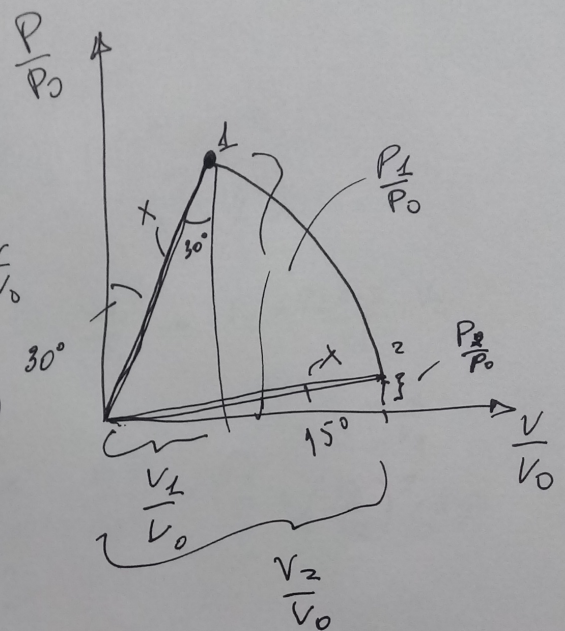 P
P0
1
P1
P0
X
30°
V0
30°
X
2
P2
P0
15°
V
V0
V1
V0
V2
V0